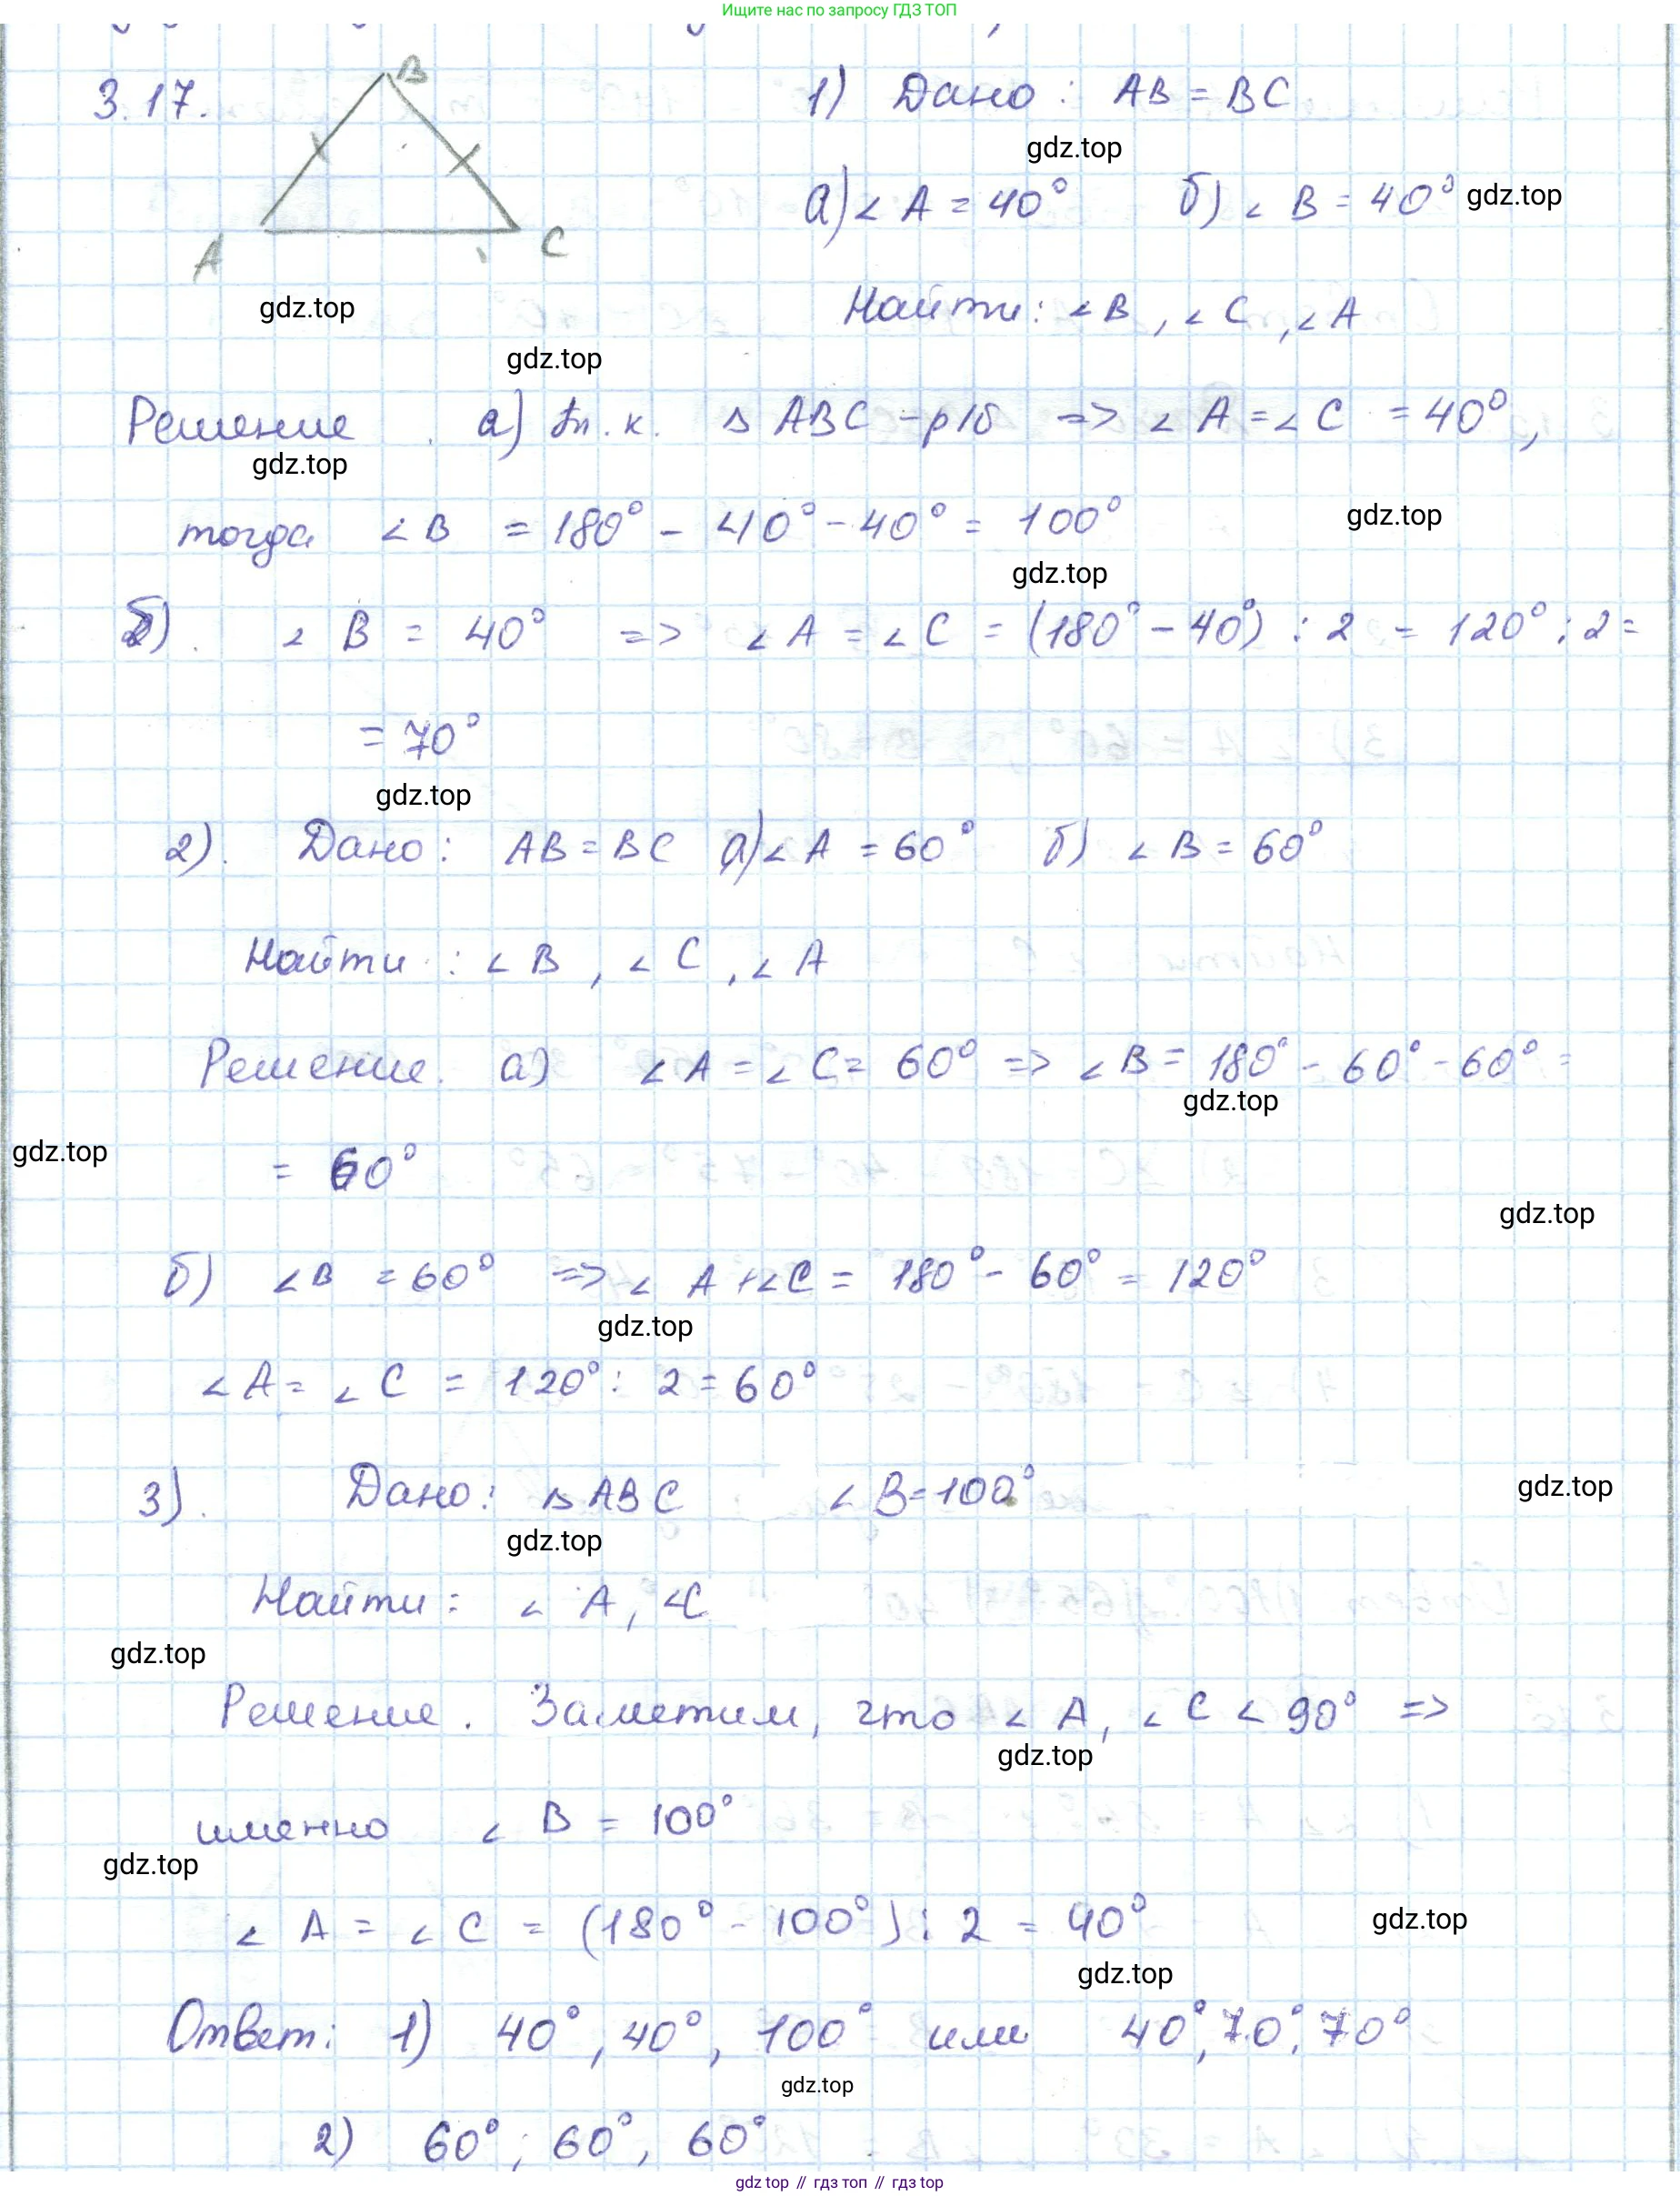 Ищите нас по запросу ГДЗ ТОП
3.17.
B
A
C
1) Дано: AB = BC
gdz.top
а) ∠ A = 40° б) ∠ B = 40° gdz.top
gdz.top
Найти: ∠ B, ∠ C, ∠ A
gdz.top
Решение. а) т.к. △ ABC - р/б => ∠ A = ∠ C = 40°,
gdz.top
тогда ∠ B = 180° - 40° - 40° = 100°
gdz.top
gdz.top
б). ∠ B = 40° => ∠ A = ∠ C = (180° - 40°) : 2 = 120° : 2 =
= 70°
gdz.top
2). Дано: AB = BC а) ∠ A = 60° б) ∠ B = 60°
Найти: ∠ B, ∠ C, ∠ A
Решение. а) ∠ A = ∠ C = 60° => ∠ B = 180° - 60° - 60° =
gdz.top
gdz.top
= 60°
gdz.top
б) ∠ B = 60° => ∠ A + ∠ C = 180° - 60° = 120°
gdz.top
∠ A = ∠ C = 120° : 2 = 60°
3). Дано: △ ABC ∠ B = 100°
gdz.top
gdz.top
Найти: ∠ A, ∠C
gdz.top
Решение. Заметим, что ∠ A, ∠ C < 90° =>
gdz.top
именно ∠ B = 100°
gdz.top
∠ A = ∠ C = (180° - 100°) : 2 = 40°
gdz.top
gdz.top
Ответ: 1) 40°, 40°, 100° или 40°, 70°, 70°
gdz.top
2) 60°, 60°, 60°
gdz top // гдз топ // гдз top